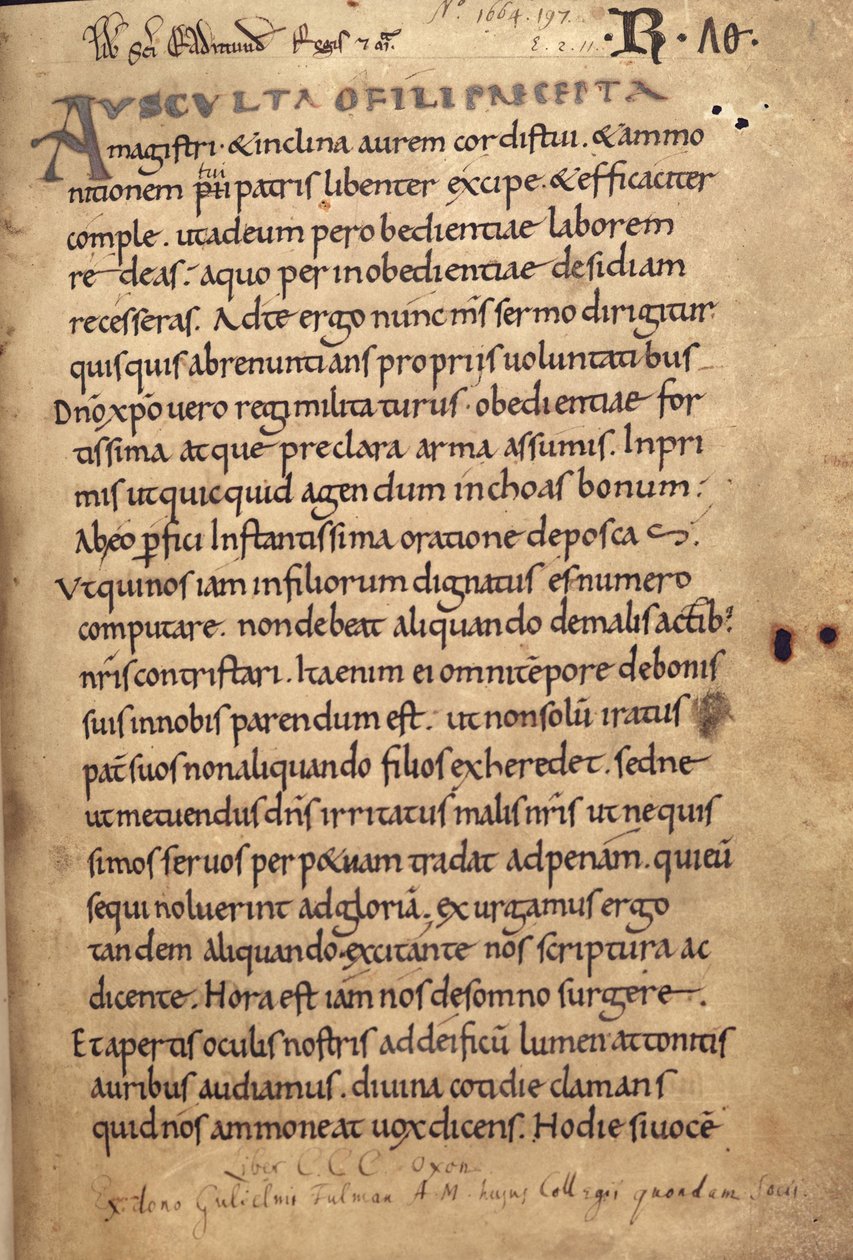 Nº. 1664. 197.
Lib̃ sc̃i Eadmund Regis ⁊ m̃r̃.
E. 2. 11.
·R· Λθ.
AUSCULTA O FILI PRECEPTA
magistri· & inclina aurem cordis tui. & ammo
nitionem pii patris libenter excipe· & efficaciter
tui
comple. ut ad eum per obedientiae laborem
redeas; a quo per inobedientiae desidiam
recesseras. Ad te ergo nunc m̅s sermo dirigitur
quisquis abrenuntians propriis uoluntatibus
Dn̅o xp̅o uero regi militaturus· obedientiae for
tissima atque preclara arma assumis. In pri
mis ut quicquid agendum inchoas bonum;
Ab eo p̲fici Instantissima oratione deposcas.
Ut qui nos iam in filiorum dignatus es numero
computare. non debeat aliquando de malis actib;
nr̅is contristari. Ita enim ei omni te̅pore de bonis
suis in nobis parendum est. ut non solu̅ iratus
pat̅ suos non aliquando filios exheredet. sed ne
ut metuendus dn̅s irritatus malis nr̅is ut nequis
simos seruos perp&uam tradat ad penam. qui eu̅
sequi noluerint ad gloria̅. exurgamus ergo
tandem aliquando· excitante nos scriptura ac
dicente. Hora est iam nos de somno surgere.
Et apertis oculis nostris ad deificu̅ lumen attonitis
auribus audiamus. diuina cotidie clamans
quid nos ammoneat uox dicens. Hodie si uoce̅
Liber C. C. C. Oxon
Ex dono Gulielmi Fulman A. M. hujus Collegii quondam Socii.